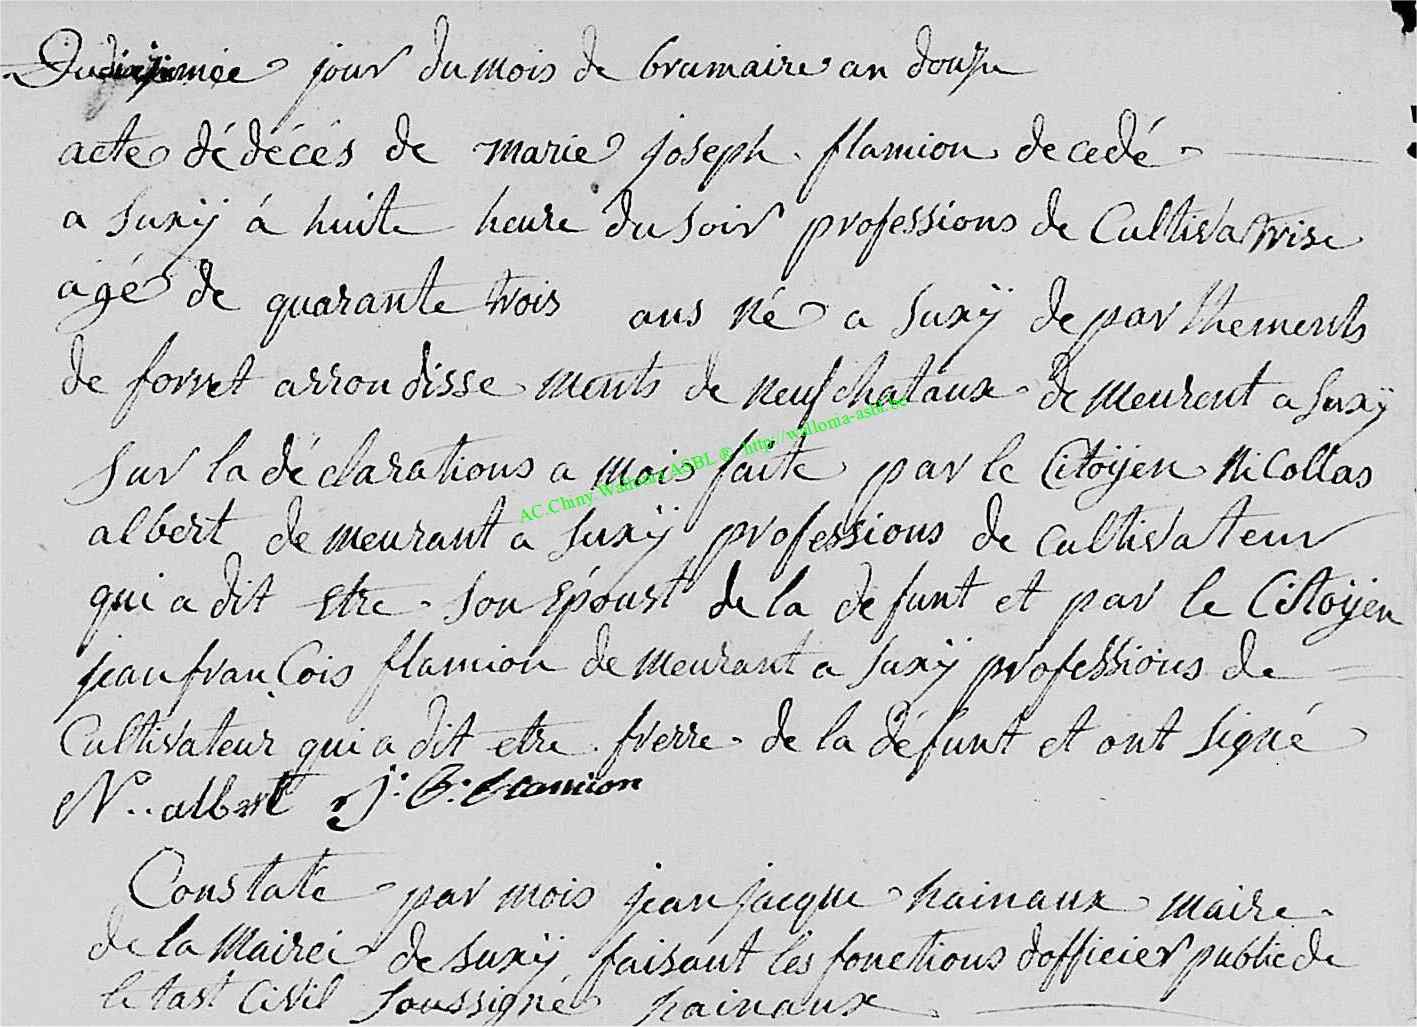 Du dixiemée jour du mois de brumaire an douze
acte dé décés de marie joseph flamion decedé
a suxÿ á huite heure du soir professions de Cultivatrise
agé de quarante trois ans né a suxÿ de par thements
de forret arron disse ments de neufchataux de meurent a suxÿ
sur la déclarations a mois faite par le Citoÿen nicollas
AC.Chiny Wallonia ASBL @ http://wallonia-asbl.be
albert de meurant a suxÿ professions de cultivateur
qui a dit etre son epoust de la defunt et par le Citoÿen
jean franCois flamion de meurant a suxÿ professions de
Cultivateur qui a dit etre frerre de la défunt et ont signé
N.. albert j: flamion
Constate par mois jean jacque hainaux maire
de la mairei de suxÿ faisant les fonctions dofficier public de
le tast Civil soussigné hainaux